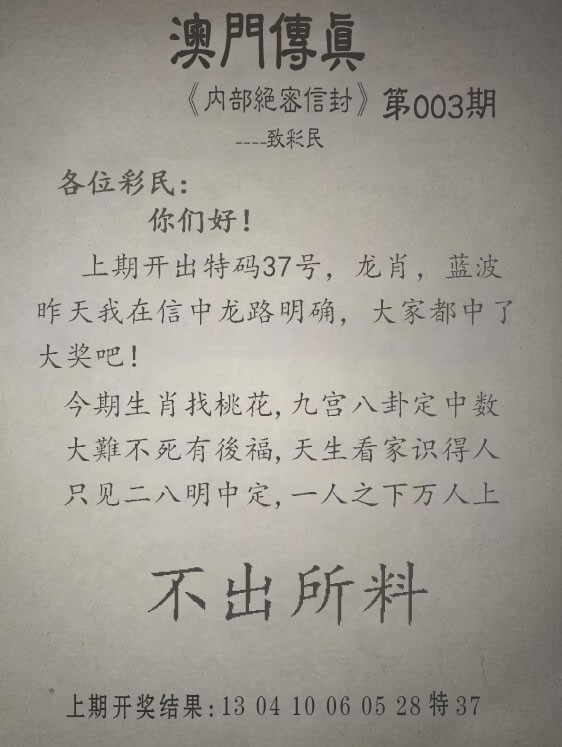 澳門傳真
《内部絕密信封》第003期
----致彩民
各位彩民:
你们好!
上期开出特码37号，龙肖，蓝波
昨天我在信中龙路明确，大家都中了
大奖吧!
今期生肖找桃花,九宫八卦定中数
大難不死有後福,天生看家识得人
只见二八明中定,一人之下万人上
不出所料
上期开奖结果:13 04 10 06 05 28特37